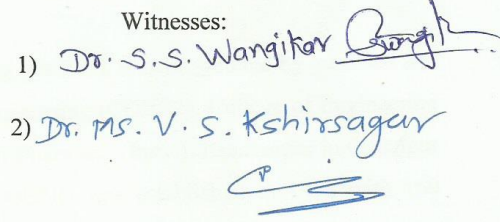 Witnesses:
1) Dr. S.S. Wangikar
2) Dr. Ms. V. S. Kshirsagar